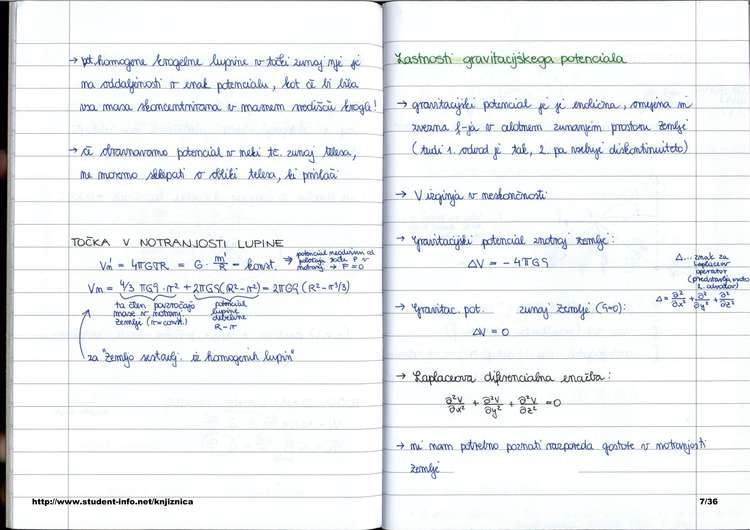 → pot. homogene krogelne lupine v točki zunaj nje je
na oddaljenosti r enak potencialu, kot če bi bila
vsa masa skoncentrirana v masnem središču krogle!
→ če obravnavamo potencial v neki tč. zunaj telesa,
ne moremo sklepati o obliki telesa, ki privlači
TOČKA V NOTRANJOSTI LUPINE
Vm' = 4πGσR = G · m'/R = konst. → potencial neodvisen od
položaja točke P v
notranj. → F=0
Vm = 4/3 πGρ · r² + 2πGρ(R²-r²) = 2πGρ(R² - r²/3)
ta člen povzročajo
mase v notranj.
Zemlje (r=konst.)
potencial
lupine
debeline
R-r
za "Zemljo sestavlj. iz homogenih lupin"
Lastnosti gravitacijskega potenciala
→ gravitacijski potencial je enolična, omejena in
zvezna f-ja v celotnem zunanjem prostoru Zemlje
(tudi 1. odvod je tak, 2. pa vsebuje diskontinuiteto)
→ V izginja v neskončnosti
→ gravitacijski potencial znotraj Zemlje:
ΔV = -4πGρ
Δ... znak za
Laplaceov
operator
(predstavlja vsoto
2. odvodov)
Δ = ∂²/∂x² + ∂²/∂y² + ∂²/∂z²
→ Gravitac. pot. zunaj Zemlje (ρ=0)
ΔV = 0
→ Laplaceova diferencialna enačba:
∂²V/∂x² + ∂²V/∂y² + ∂²V/∂z² = 0
→ ni nam potrebno poznati razporeda gostote v notranjosti
Zemlje
http://www.student-info.net/knjiznica
7/36